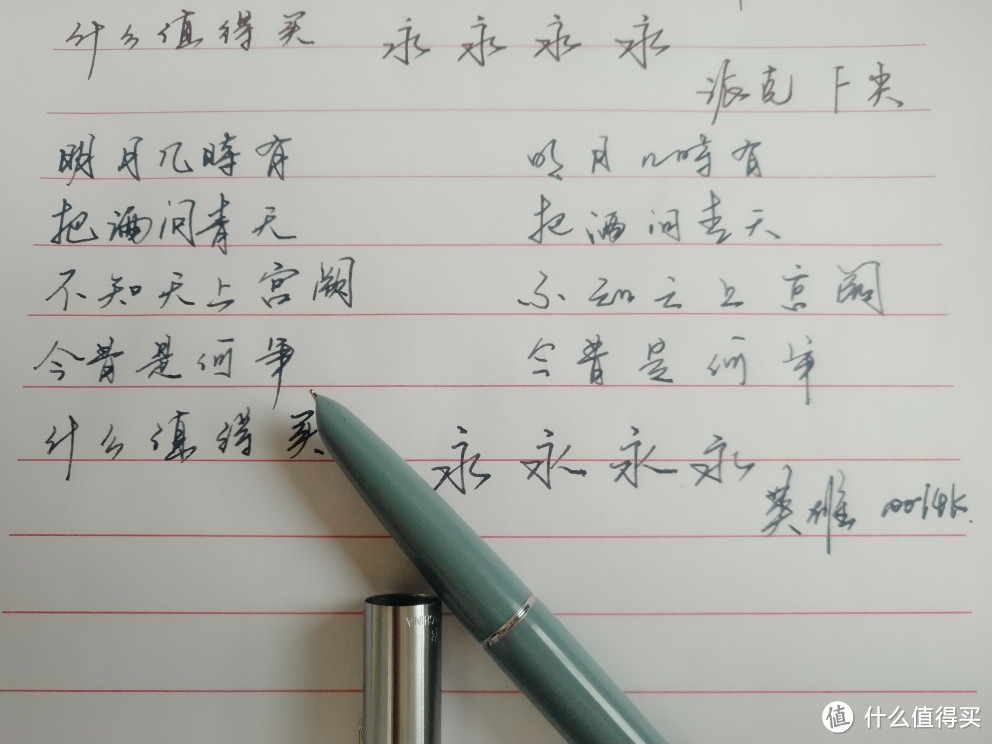 什么值得买 永 永 永 永
派克 F尖
明月几時有 明月几時有
把酒问青天 把酒问青天
不知天上宫阙 不知天上宫阙
今昔是何年 今昔是何年
什么值得买 永 永 永 永
英雄 100 14K.
CHINA
值 什么值得买